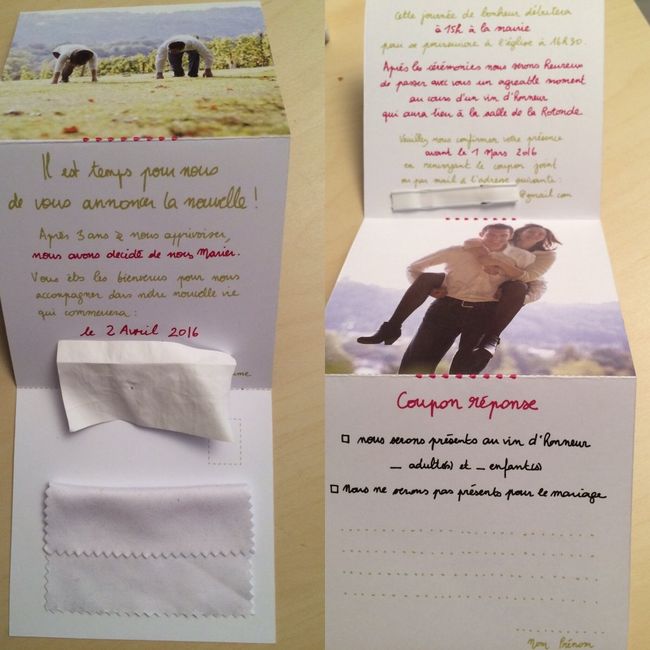 Il est temps pour nous
de vous annoncer la nouvelle !
Après 3 ans à nous apprivoiser,
nous avons décidé de nous Marier.
Vous êts les bienvenus pour nous
accompagner dans notre nouvelle vie
qui commencera :
le 2 Avril 2016
Cette journée de bonheur débutera
à 15h à la mairie
pour se poursuivre à l'église à 16h30.
Après les cérémonies nous serons Heureux
de passer avec vous un agréable moment
au cours d'un vin d'Honneur
qui aura lieu à la salle de la Rotonde
Veuillez nous confirmer votre présence
avant le 1 Mars 2016
en renvoyant le coupon joint
ou par mail à l'adresse suivante :
@gmail.com
Coupon réponse
nous serons présents au vin d'Honneur
_ adulte(s) et _ enfant(s)
Nous ne serons pas présents pour le mariage
Nom Prénom